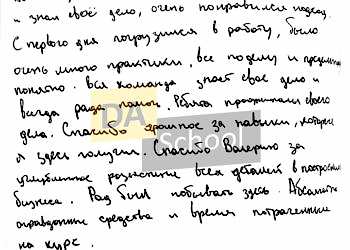 и знал своё дело, очень понравился подход.
С первого дня погрузился в работу, было
очень много практики, все по делу и предельно
понятно. Вся команда знает свое дело и
всегда рада помочь. Ребята профессионалы своего
дела. Спасибо огромное за навыки, которые
я здесь получил. Спасибо Валерию за
углубленное разъяснение всех деталей в построении
бизнеса. Рад был побывать здесь. Абсолютно
оправданные средства и время потраченные
на курс.
DA
School